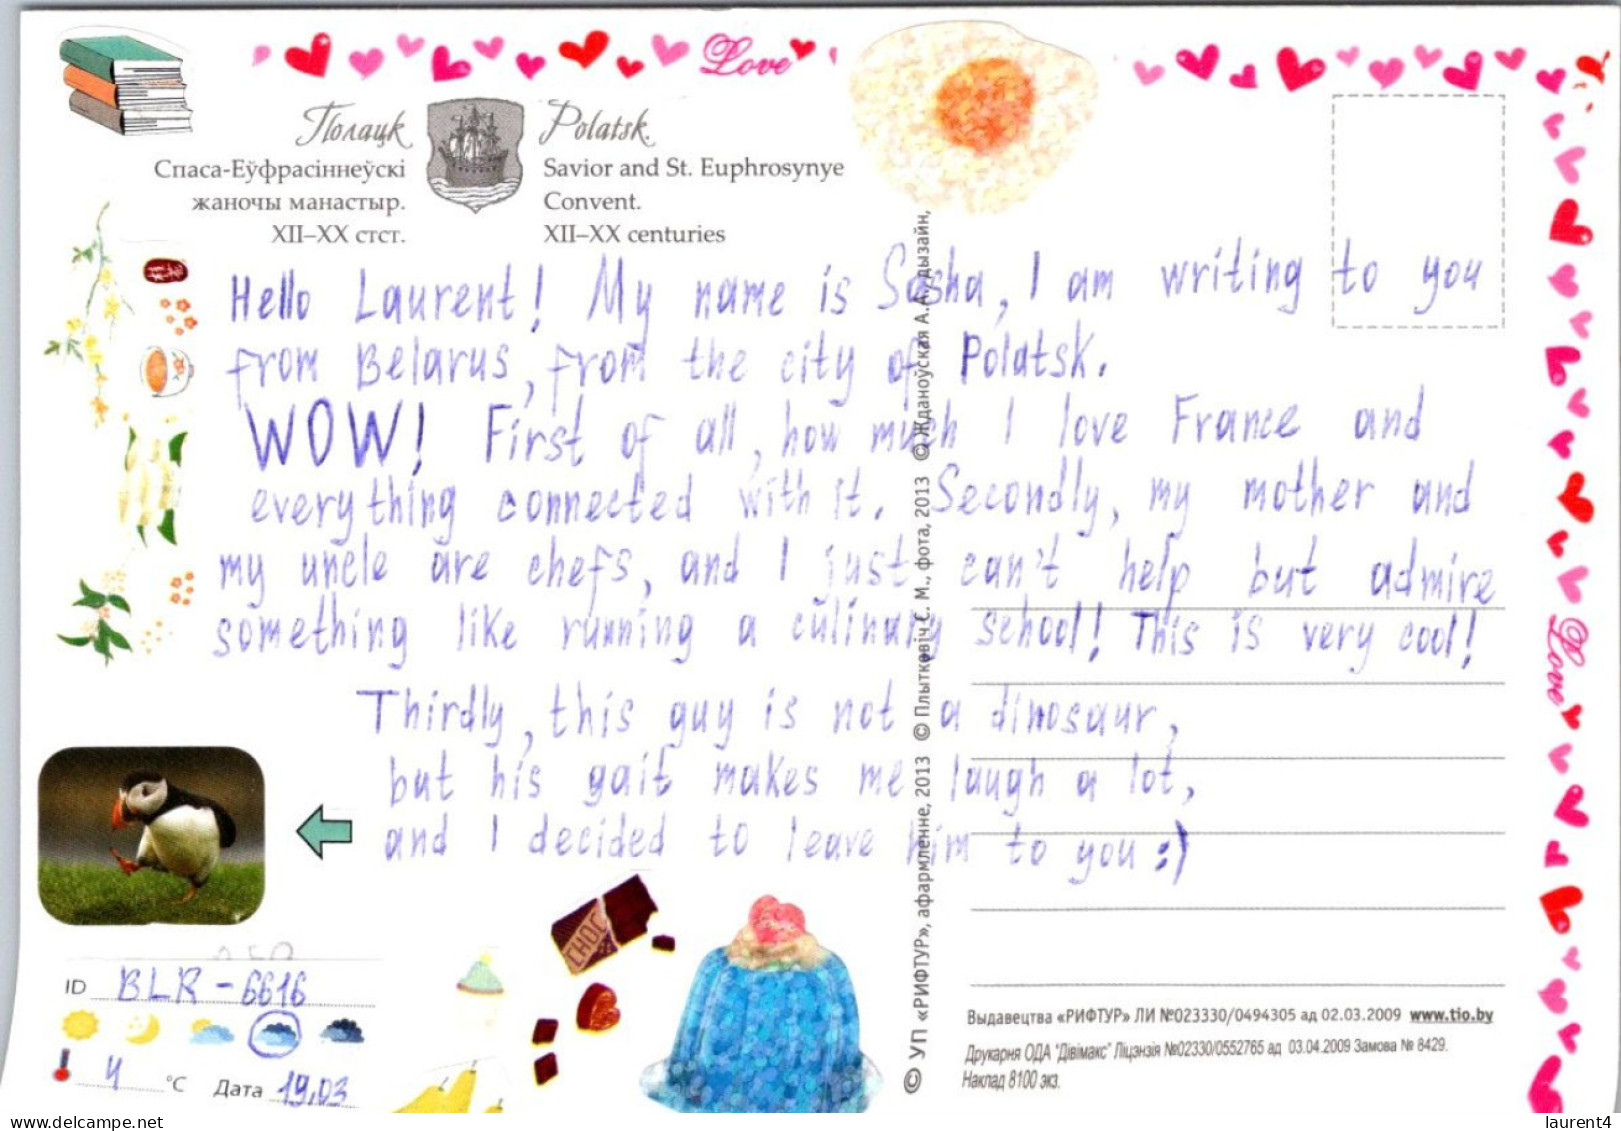 Love
Полацк
Спаса-Еўфрасіннеўскі
жаночы манастыр.
XII–XX стст.
Polatsk.
Savior and St. Euphrosynye
Convent.
XII–XX centuries
Hello Laurent! My name is Sasha, I am writing to you
from Belarus, from the city of Polatsk.
WOW! First of all, how much I love France and
everything connected with it. Secondly, my mother and
my uncle are chefs, and I just can't help but admire
something like running a culinary school! This is very cool!
Thirdly, this guy is not a dinosaur,
but his gait makes me laugh a lot,
and I decided to leave him to you :)
CHOC
ID BLR-6616
4 °C Дата 19.03
© УП «РИФТУР», афармленне, 2013 © Плыткевіч С. М., фота, 2013 © Ждановуская А. А., дызайн,
Love
Выдавецтва «РИФТУР» ЛИ №023330/0494305 ад 02.03.2009 www.tio.by
Друкарня ОДА "Дівімакс" Ліцэнзія №02330/0552765 ад 03.04.2009 Замова № 8429.
Наклад 8100 экз.
laurent4